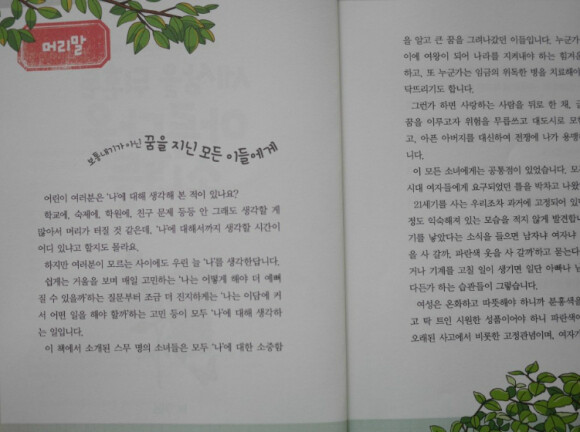 머리말
보통내기가 아닌 꿈을 지닌 모든 이들에게
어린이 여러분은 '나'에 대해 생각해 본 적이 있나요?
학교에, 숙제에, 학원에, 친구 문제 등등 안 그래도 생각할 게
많아서 머리가 터질 것 같은데, '나'에 대해서까지 생각할 시간이
어디 있냐고 할지도 몰라요.
하지만 여러분이 모르는 사이에도 우린 늘 '나'를 생각한답니다.
쉽게는 거울을 보며 매일 고민하는 '나는 어떻게 해야 더 예뻐
질 수 있을까'하는 질문부터 조금 더 진지하게는 '나는 이담에 커
서 어떤 일을 해야 할까'하는 고민 등이 모두 '나'에 대해 생각하
는 일입니다.
이 책에서 소개된 스무 명의 소녀들은 모두 '나'에 대한 소중함
을 알고 큰 꿈을 그려나갔던 이들입니다. 누군가
이에 여왕이 되어 나라를 지켜내야 하는 힘겨움
하고, 또 누군가는 임금의 위독한 병을 치료해야
닥뜨리기도 합니다.
그런가 하면 사랑하는 사람을 뒤로 한 채,
꿈을 이루고자 위험을 무릅쓰고 대도시로 모
고, 아픈 아버지를 대신하여 전쟁에 나가 용맹
니다.
이 모든 소녀에게는 공통점이 있었습니다.
시대 여자들에게 요구되었던 틀을 박차고 나왔
21세기를 사는 우리조차 과거에 고정되어 있
정도 익숙해져 있는 모습을 적지 않게 발견합니
기를 낳았다는 소식을 들으면 남자냐 여자냐
을 사 갈까, 파란색 옷을 사 갈까'하고 묻는다
거나 기계를 고칠 일이 생기면 일단 아빠나
다든가 하는 습관들이 그렇습니다.
여성은 온화하고 따뜻해야 하니까 분홍색을
고 탁 트인 시원한 성품이어야 하니 파란색
오래된 사고에서 비롯한 고정관념이며, 여자